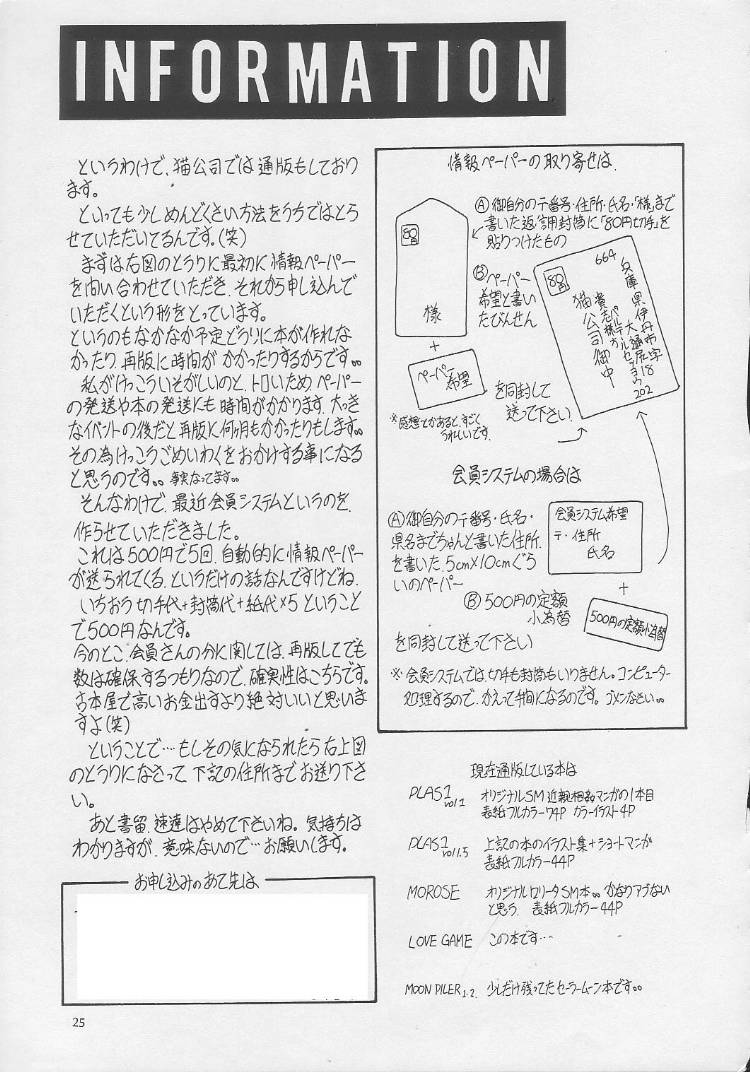 INFORMATION
ます。
といっても少しめんどくさい方法をうちではとら
せていただいてるんです。(笑)
まずは右図のとうりに最初に情報ペーパー
を問い合わせていただき、それから申し込んで
いただくという形をとっています。
というのもなかなか予定どうりに本が作れな
かったり、再版に時間がかかったりするからです。。
私がけっこういそがしいのと、トロいため、ペーパー
の発送や本の発送にも時間がかかります。大っき
なイベントの後だと再版に何ヶ月もかかったりもします。。
その為けっこうごめいわくをおかけする事になる
と思うのです。。事実なってます。。
そんなわけで、最近会員システムというのを、
作らせていただきました。
これは500円で5回、自動的に情報ペーパー
が送られてくる、というだけの話なんですけどね、
いちおう切手代+封筒代+紙代×5ということ
で500円なんです。
今のとこ、会員さんの分に関しては、再版してでも
数は確保するつもりなので、確実性はこちらです。
古本屋で高いお金出すより絶対いいと思いま
すよ(笑)
ということで…もしその気になられたら右上図
のとうりになさって、下記の住所までお送り下さ
い。
あと書留、速達はやめて下さいね。気持ちは
わかりますが、意味ないので…お願いします。
お申し込みのあて先は
25
情報ペーパーの取り寄せは、
Ⓐ御自分の〒番号・住所・氏名・「様」まで
書いた返信用封筒に「80円切手」を
貼りつけたもの
80
様
+
Ⓑペーパー
希望と書い
たびんせん
ペーパー
希望
を同封して
送って下さい
80
*感想とかあると、すごく
うれしいです。
会員システムの場合は
Ⓐ御自分の〒番号・氏名・
県名までちゃんと書いた住所、
を書いた、5cm×10cmぐら
いのペーパー
会員システム希望
〒・住所
氏名
+
Ⓑ500円の定額
小為替
500円の定額小為替
を同封して送って下さい
*会員システムでは、切手も封筒もいりません。コンピューター
処理するので、かえって手間になるのです。ゴメンなさい。。
現在通販している本は
LOVE GAME この本です…
MOON PILER 1.2. 少しだけ残ってたセーラームーン本です。。